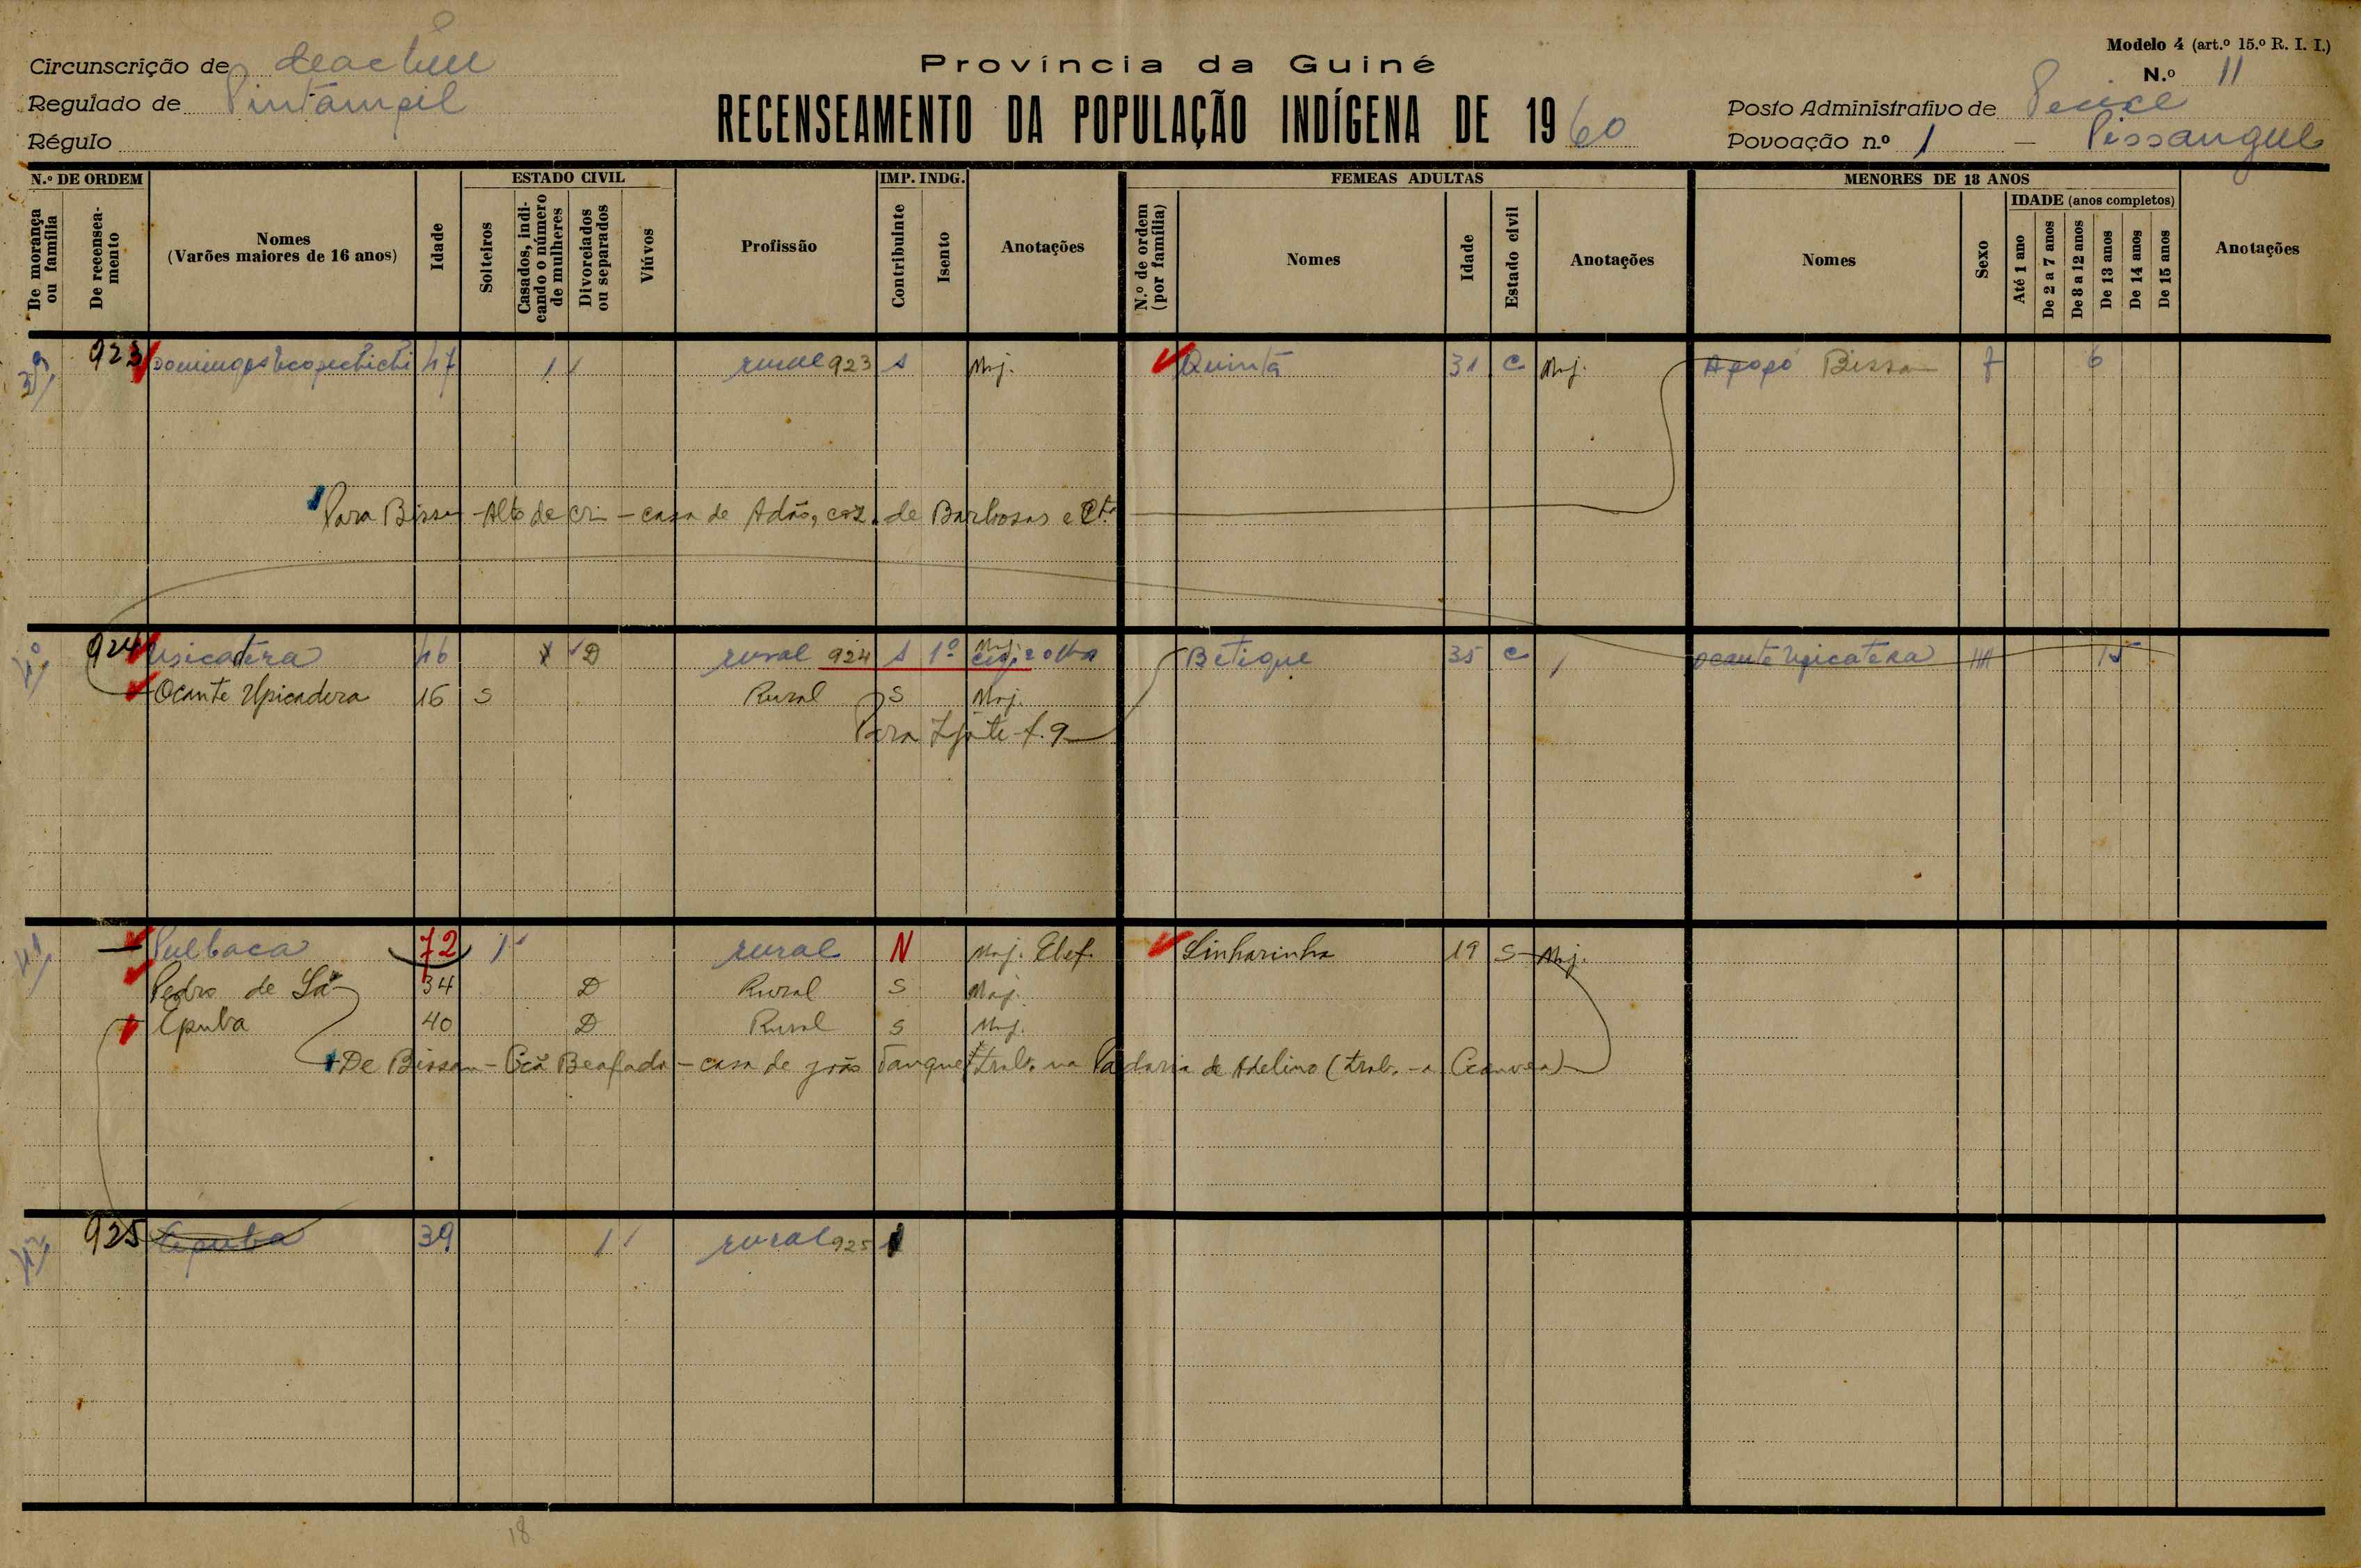 Modelo 4 (art.º 15.º R. I. I.)
Circunscrição de
Província da Guiné
N.º 11
Regulado de Pintampil
RECENSEAMENTO DA POPULAÇÃO INDÍGENA DE 1960
Posto Administrativo de Pecixe
Régulo
Povoação n.º 1 – Pissangule
N.º DE ORDEM
ESTADO CIVIL
IMP. INDG.
FEMEAS ADULTAS
MENORES DE 18 ANOS
De morança ou família
De recenseamento
Nomes (Varões maiores de 16 anos)
Idade
Solteiros
Casados, indicando o número de mulheres
Divorciados ou separados
Viúvos
Profissão
Contribuinte
Isento
Anotações
N.º de ordem (por família)
Nomes
Idade
Estado civil
Anotações
Nomes
Sexo
IDADE (anos completos)
Até 1 ano
De 2 a 7 anos
De 8 a 12 anos
De 13 anos
De 14 anos
De 15 anos
Anotações
39 923 Domingos 47 1 rural 923 s Maj. Quintã 31 C Maj. Apopó Bissau f 6
Para Bissau - Alto de cri - casa de Adão, coz. de Barbosas e Cta
40 924 Upicatera 46 X D rural 924 s 1º Maj. Betique 35 C Ocante Upicatera M 15
Ocante Upicadera 16 S Rural S Maj.
Para f. 9
41 Pulbaca 72 1 rural N Maj. Elef. Linharinha 19 S Maj.
Pedro de Sá 34 D Rural S Maj.
Epuba 40 D Rural S Maj.
De Bissau - Beafada - casa de joão Tanque trab. na Padaria de Adelino (trab.
42 925 Epuba 39 1 rural 925
18